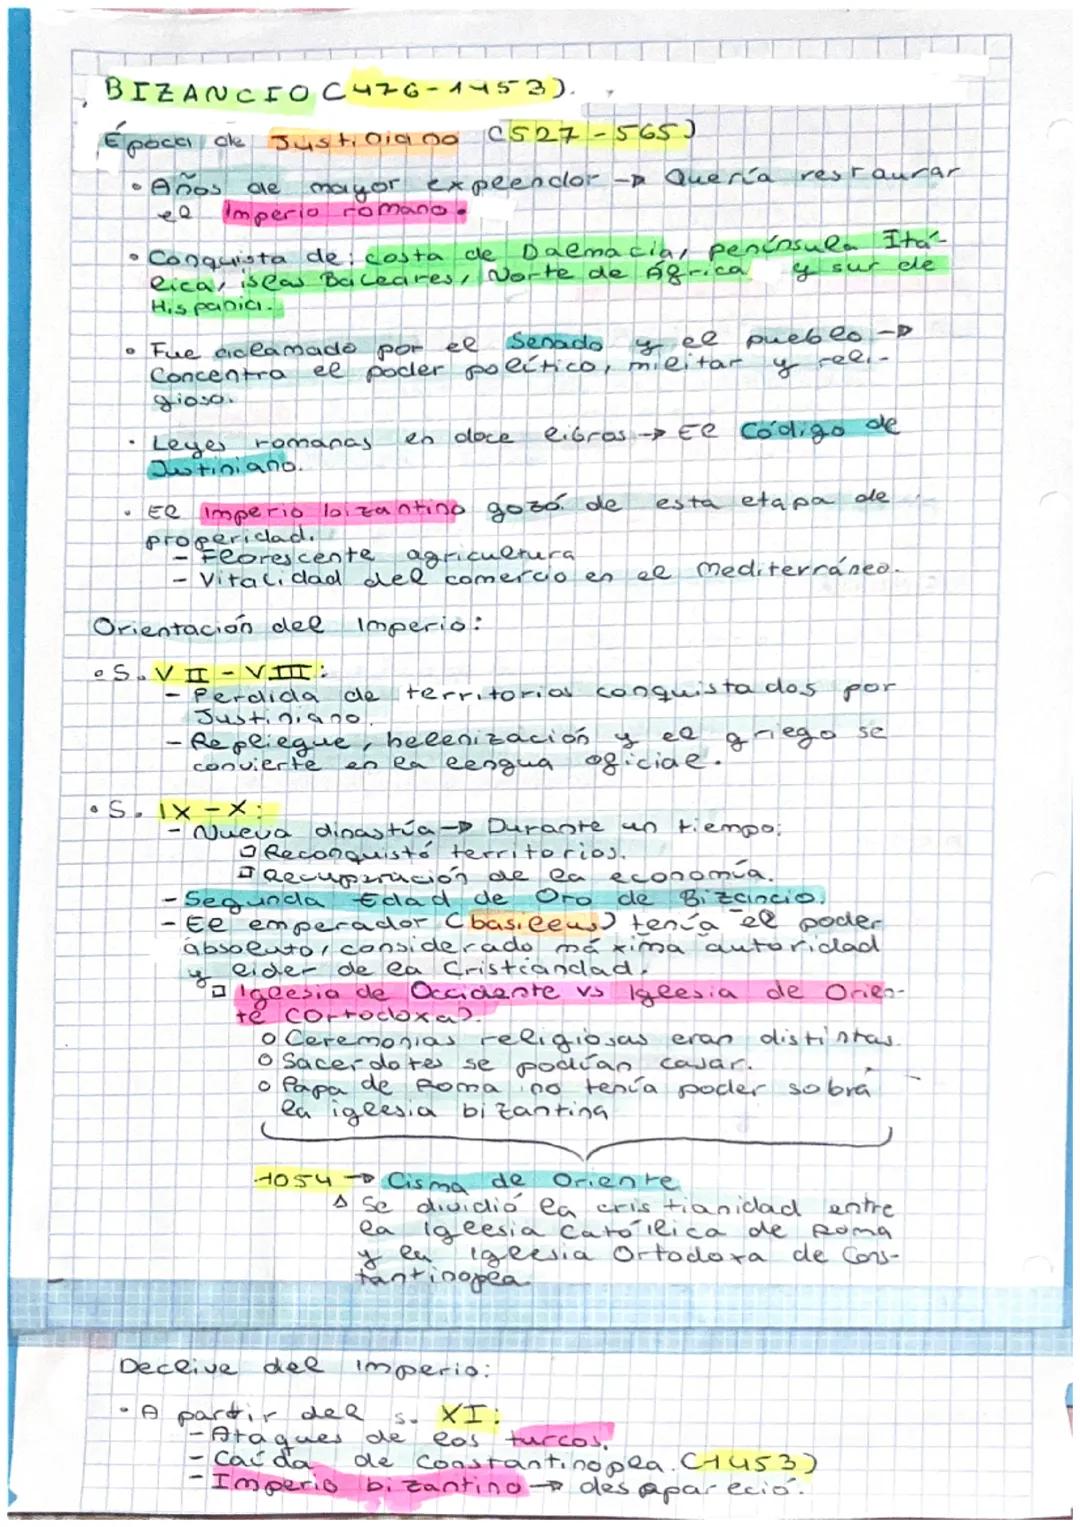 BIZANCIO (476-1453).
Época de Justiniano (527-565)
• Años de mayor expelendor → Quería restaurar
el Imperio romano.
• Conquista de: costa de Dalmacia, península Itá-
lica, islas Baleares, Norte de África y sur de
Hispania.
• Fue aclamado por el Senado y el pueblo →
Concentra el poder político, militar y reli-
gioso.
• Leyes romanas en doce libros → El Código de
Justiniano.
• El Imperio bizantino gozó de esta etapa de
properidad.
- Florescente agricultura
- Vitalidad del comercio en el Mediterráneo.
Orientación del Imperio:
• S. VII - VIII:
- Perdida de territorios conquistados por
Justiniano.
- Repliegue, helenización y el griego se
convierte en la lengua oficial.
• S. IX - X:
- Nueva dinastía → Durante un tiempo:
□ Reconquistó territorios.
□ Recuperación de la economía.
- Segunda Edad de Oro de Bizancio.
- El emperador (basileus) tenía el poder
absoluto, considerado máxima autoridad
y lider de la Cristiandad.
□ Iglesia de Occidente vs Iglesia de Orien-
te (Ortodoxa).
○ Ceremonias religiosas eran distintas.
○ Sacerdotes se podían casar.
○ Papa de Roma no tenía poder sobra
la iglesia bizantina
1054 → Cisma de Oriente
△ Se dividió la cristianidad entre
la Iglesia Católica de Roma
y la Iglesia Ortodoxa de Cons-
tantinopla
Declive del imperio:
• A partir del s. XI:
- Ataques de los turcos.
- Caída de Constantinopla. (1453)
- Imperio bizantino → desapareció.